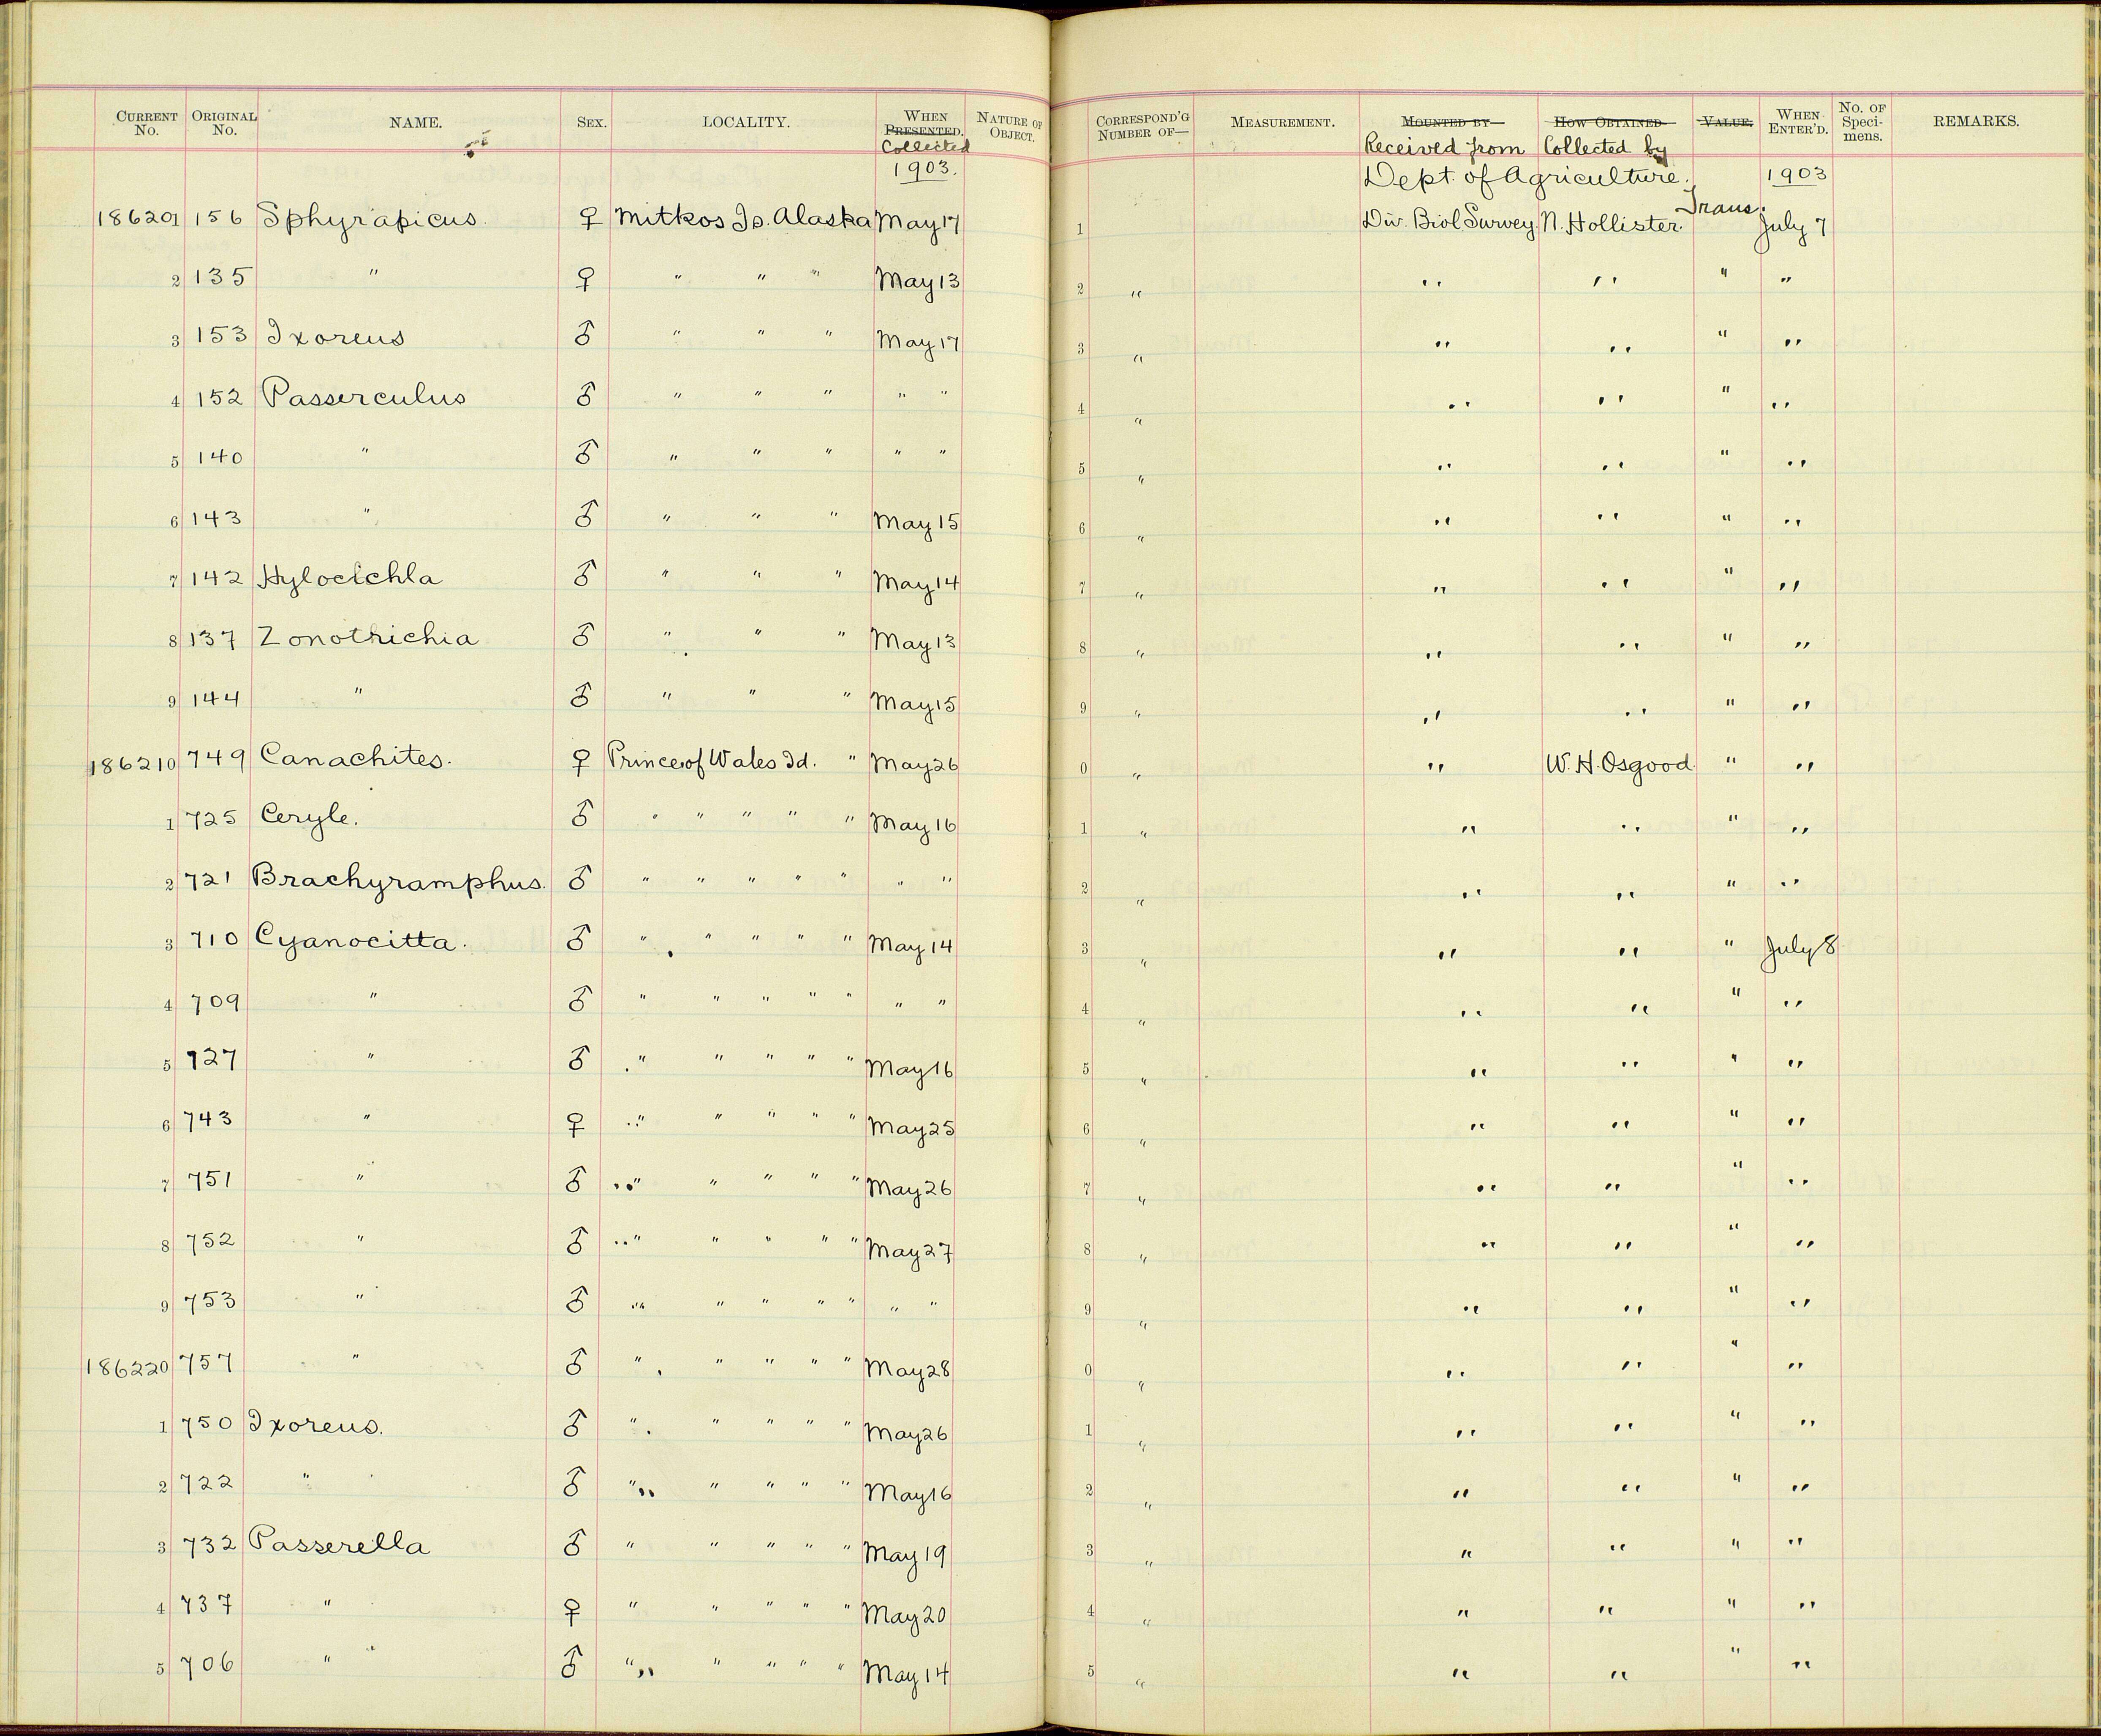 CURRENT No. ORIGINAL No. NAME. SEX. LOCALITY. WHEN PRESENTED. Collected NATURE OF OBJECT. CORRESPOND'G NUMBER OF— MEASUREMENT. MOUNTED BY— Received from HOW OBTAINED Collected by VALUE. WHEN ENTER'D. No. OF Speci-mens. REMARKS.
1903. Dept. of Agriculture. 1903
186201 156 Sphyrapicus ♀ Mitkos Is. Alaska May 17 1 Div. Biol Survey. N. Hollister. Trans. July 7
2 135 " ♀ " " " May 13 2 " " " " "
3 153 Ixoreus ♂ " " " May 17 3 " " " " "
4 152 Passerculus ♂ " " " " " 4 " " " " "
5 140 " ♂ " " " " " 5 " " " " "
6 143 " ♂ " " " May 15 6 " " " " "
7 142 Hylocichla ♂ " " " May 14 7 " " " " "
8 137 Zonotrichia ♂ " " " May 13 8 " " " " "
9 144 " ♂ " " " May 15 9 " " " " "
186210 749 Canachites. ♀ Prince of Wales Id. " May 26 0 " " W. H. Osgood " "
1 725 Ceryle. ♂ " " " " " May 16 1 " " " " "
2 721 Brachyramphus. ♂ " " " " " " " 2 " " " " "
3 710 Cyanocitta. ♂ " " " " " May 14 3 " " " " July 8
4 709 " ♂ " " " " " " " 4 " " " " "
5 727 " ♂ " " " " " May 16 5 " " " " "
6 743 " ♀ " " " " " May 25 6 " " " " "
7 751 " ♂ " " " " " May 26 7 " " " " "
8 752 " ♂ " " " " " May 27 8 " " " " "
9 753 " ♂ " " " " " " " 9 " " " " "
186220 757 " ♂ " " " " " May 28 0 " " " " "
1 750 Ixoreus. ♂ " " " " " May 26 1 " " " " "
2 722 " ♂ " " " " " May 16 2 " " " " "
3 732 Passerella ♂ " " " " " May 19 3 " " " " "
4 737 " ♀ " " " " " May 20 4 " " " " "
5 706 " ♂ " " " " " May 14 5 " " " " "